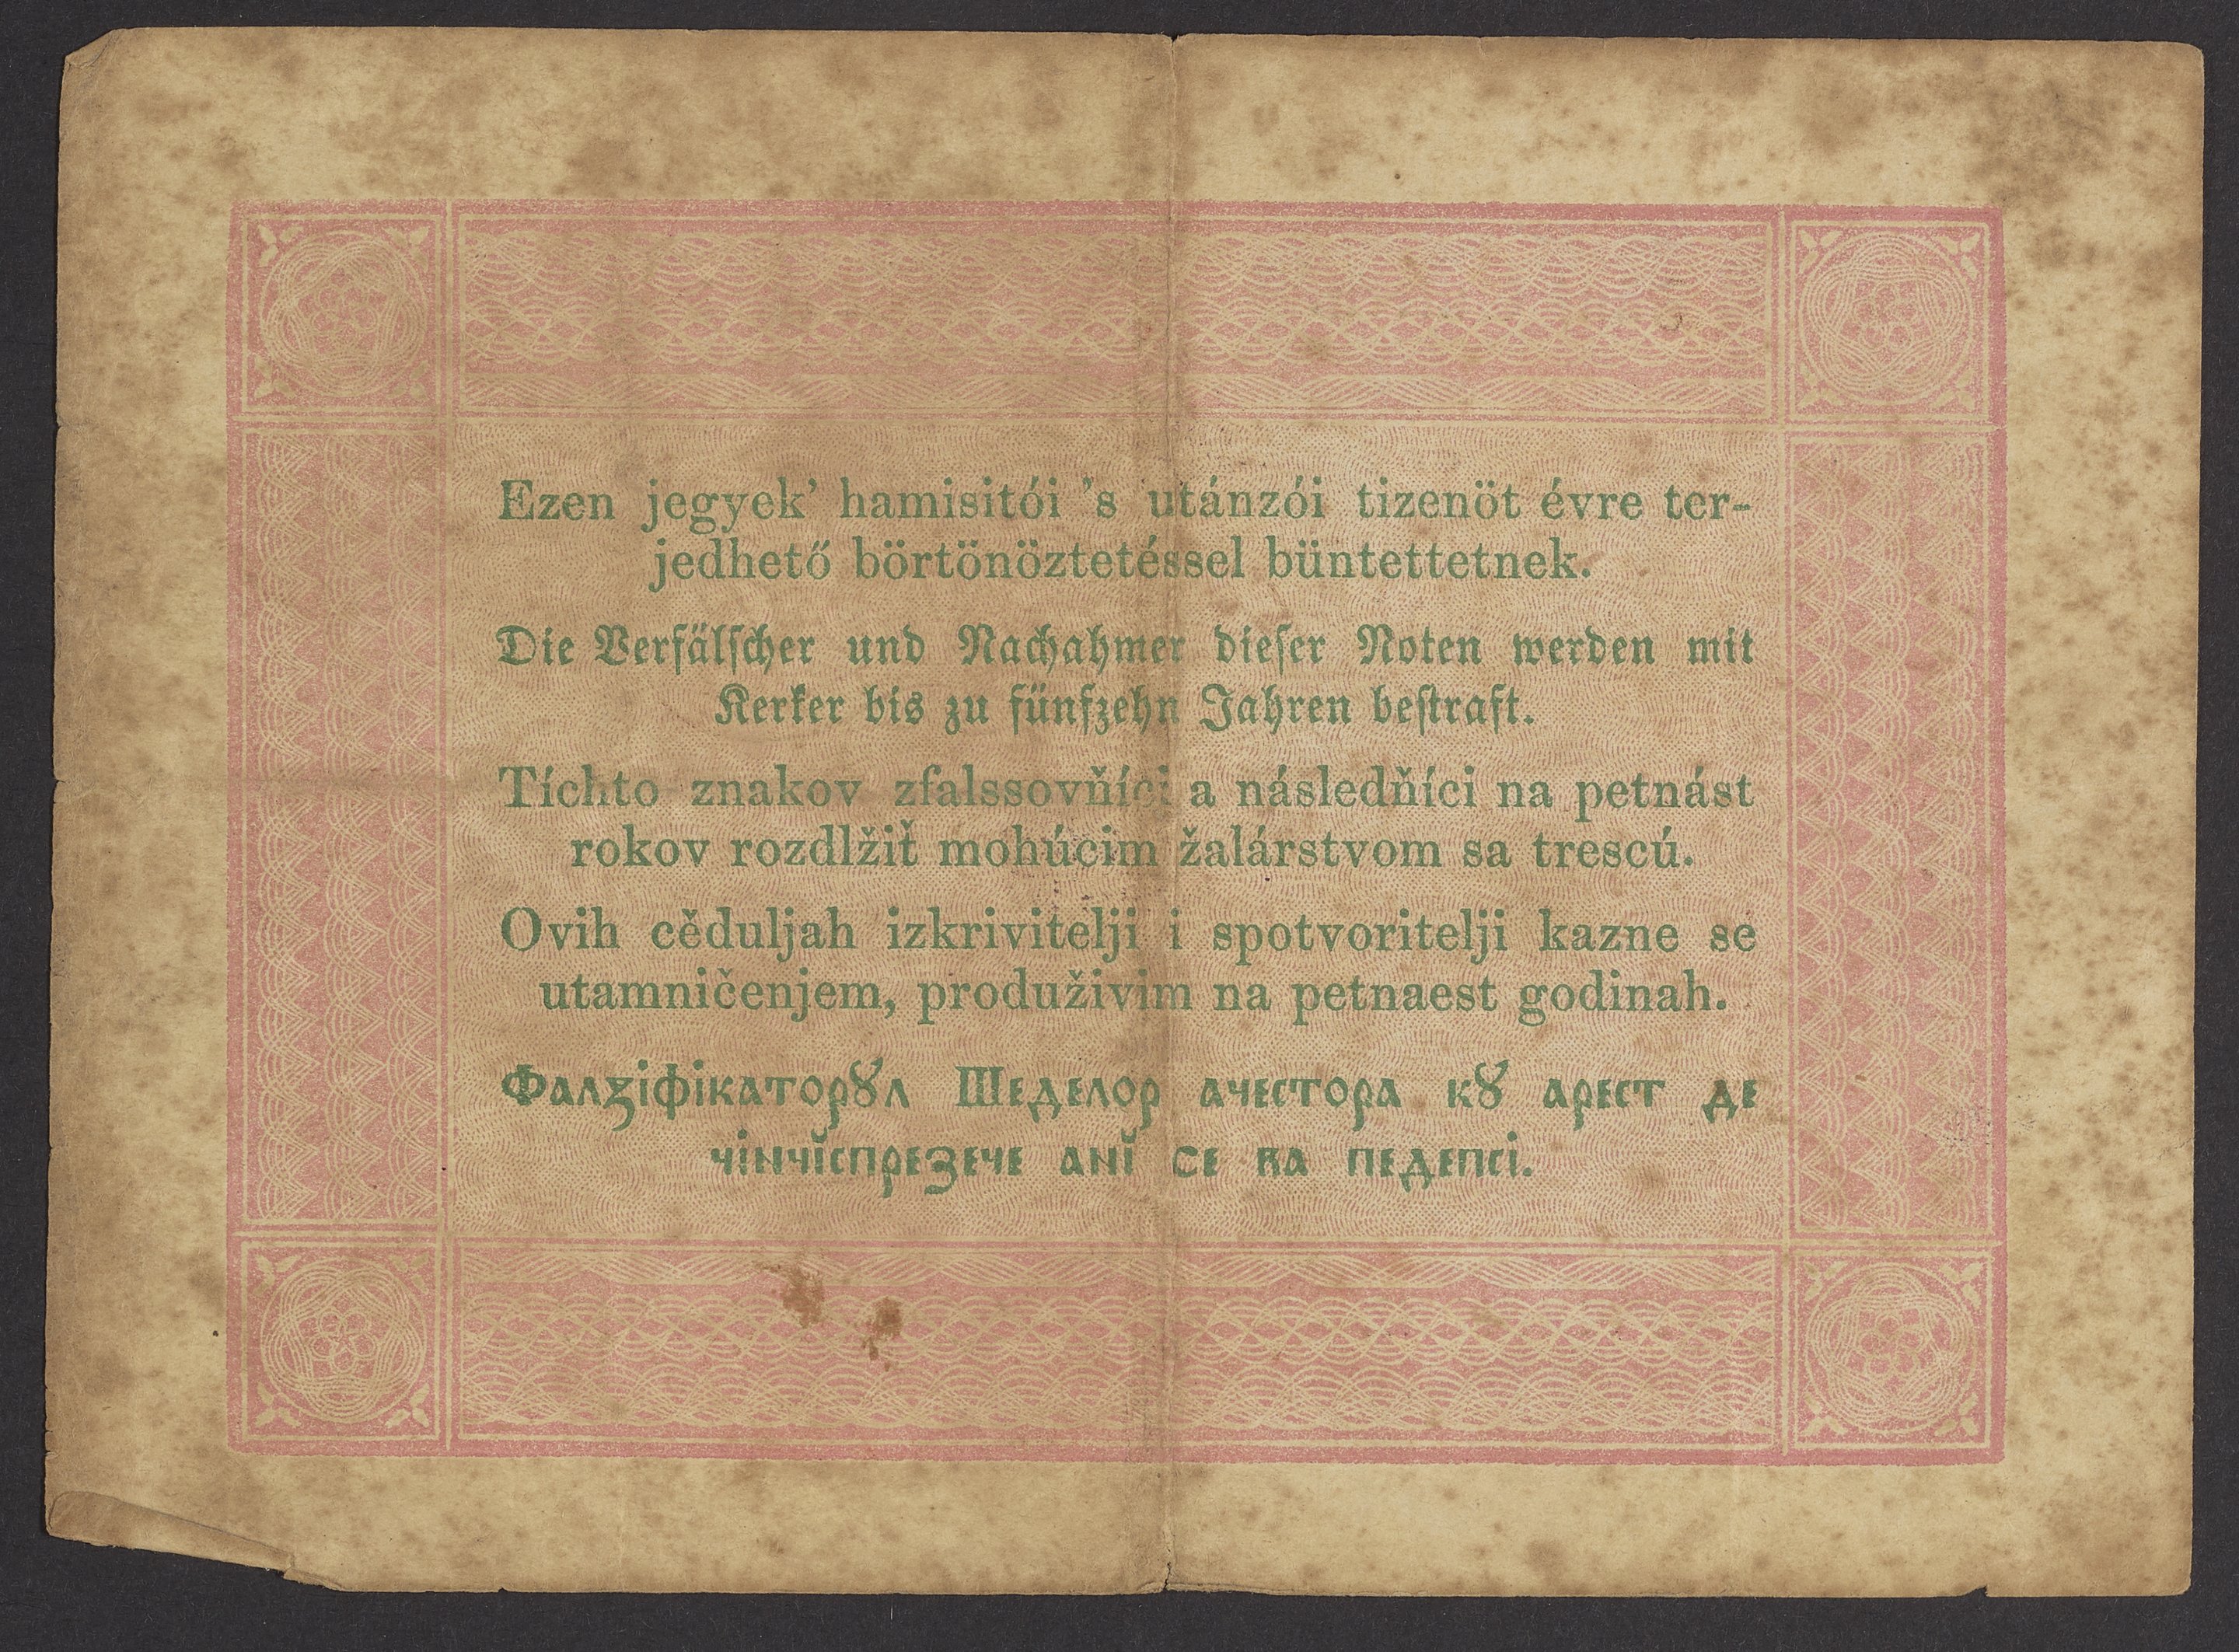 Ezen jegyek’ hamisitói ’s utánzói tizenöt évre ter-
jedhető börtönöztetéssel büntettetnek.
Die Verfälſcher und Nachahmer dieſer Noten werden mit
Kerker bis zu fünfzehn Jahren beſtraft.
Tíchto znakov zfalssovňíci a následňíci na petnást
rokov rozdlžiť mohúcim žalárstvom sa trescú.
Ovih cěduljah izkrivitelji i spotvoritelji kazne se
utamničenjem, produživim na petnaest godinah.
Фалꙁіфікаторꙋл Шеделор ачестора кꙋ арест де
чінчĭспрезече анĭ се ва педепсі.